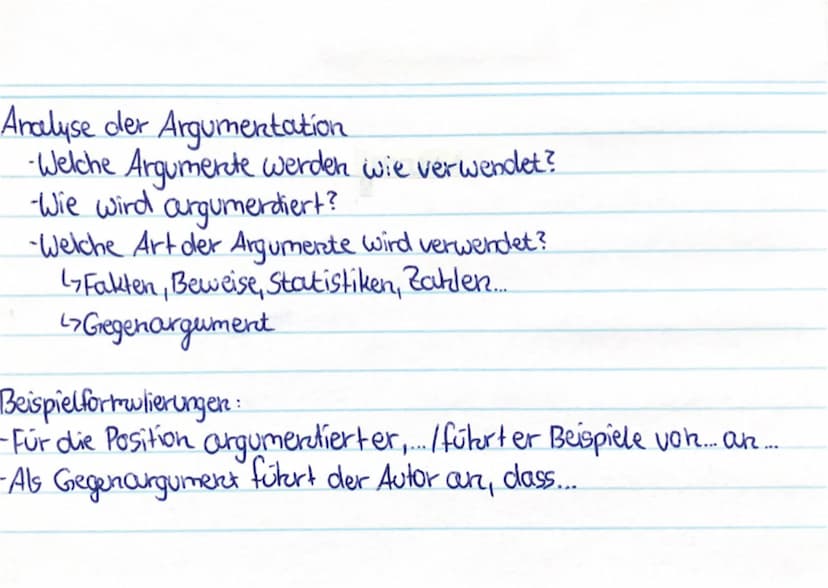 Analyse der Argumentation
-Welche Argumente werden wie verwendet?
-Wie wird argumentiert?
-Welche Art der Argumente wird verwendet?
↳Fakten, Beweise, Statistiken, Zahlen...
↳Gegenargument
Beispielformulierungen:
-Für die Position argumentiert er,.../führt er Beispiele von... an...
-Als Gegenargument führt der Autor an, dass...